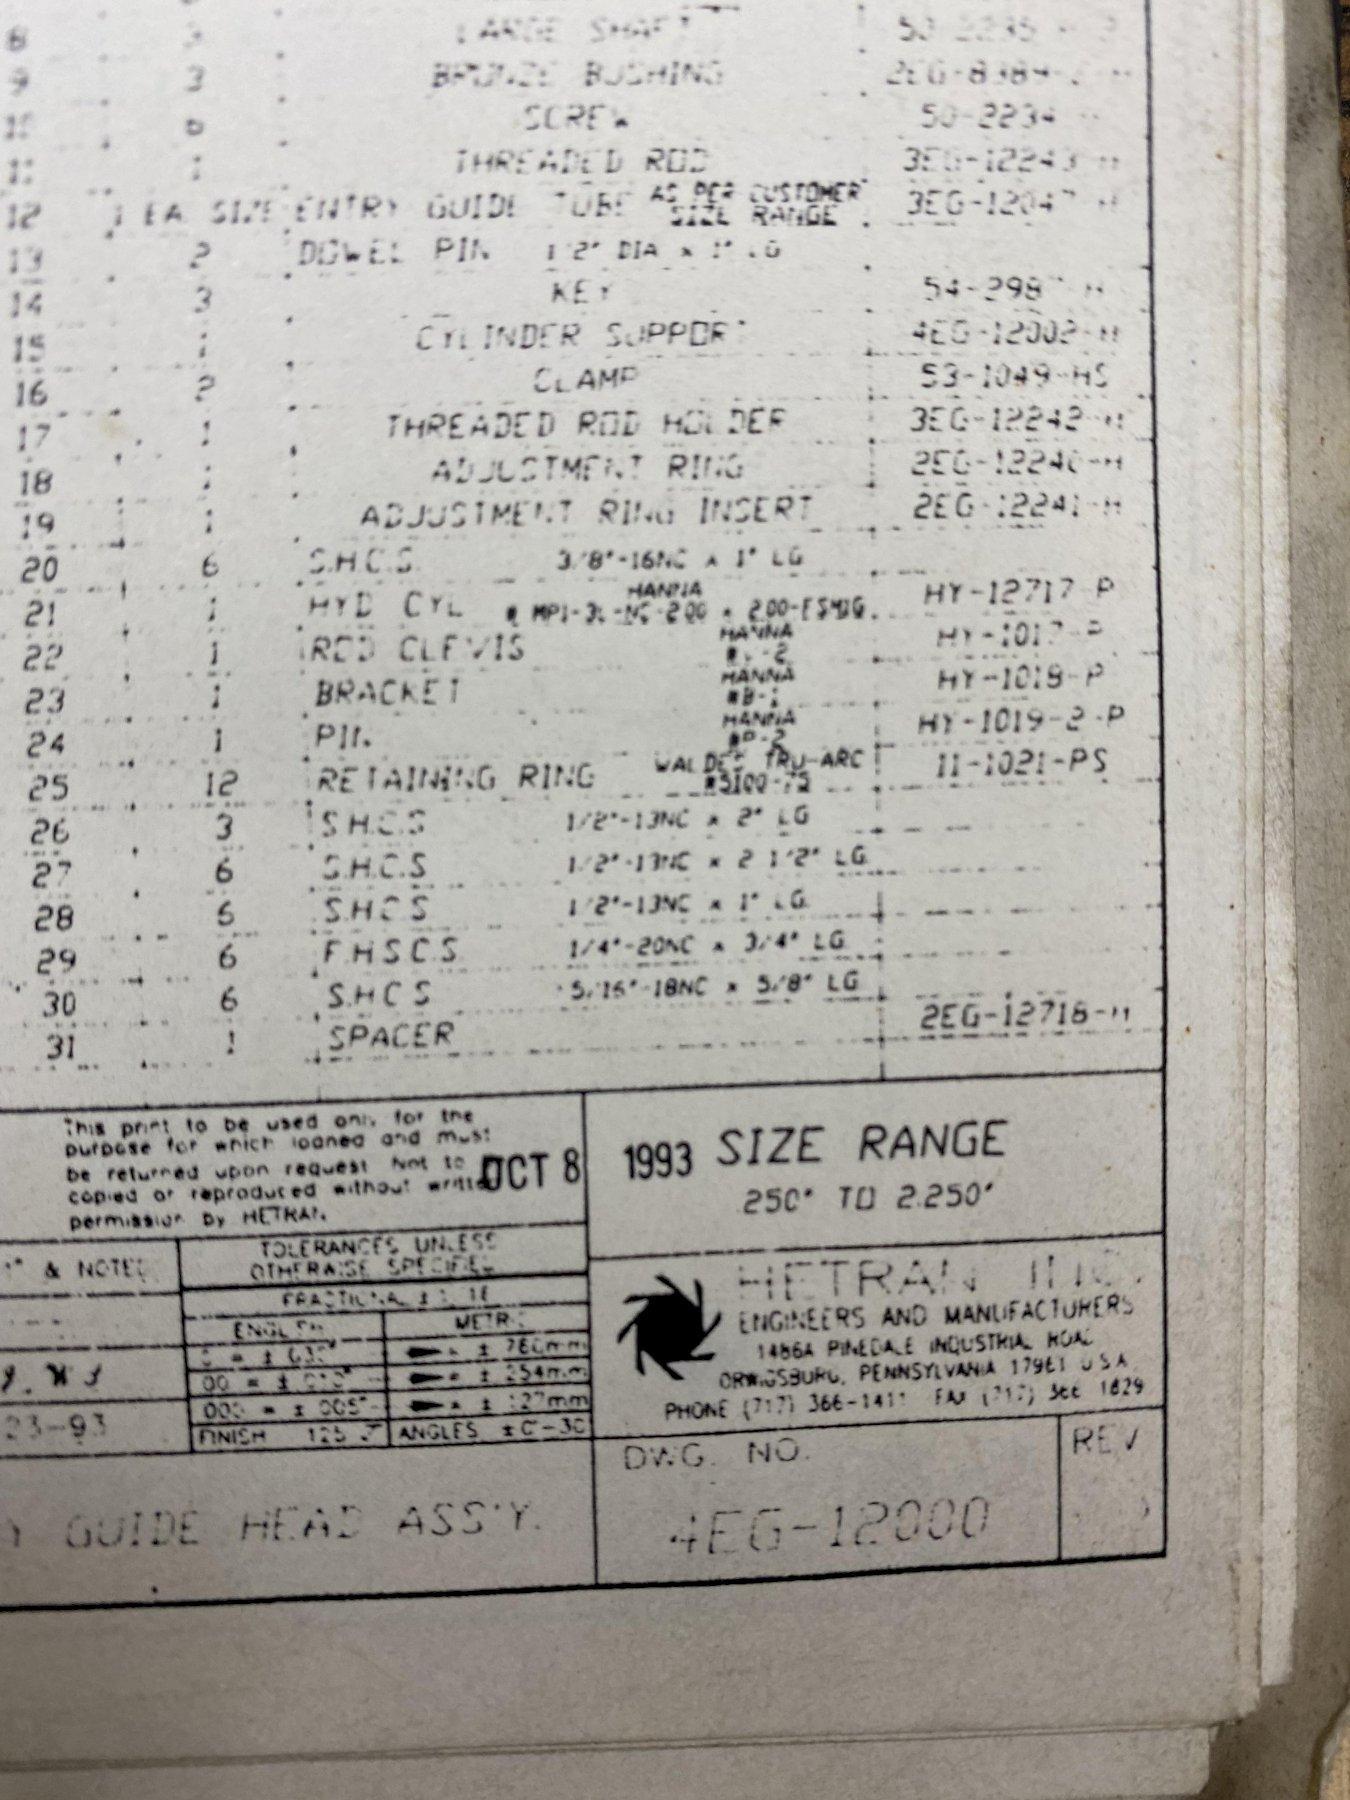 8 3 LARGE SHAFT
9 3 BRONZE BUSHING
SCREW 50-2234
11 1 THREADED ROD 3EG-12243-H
12 1 EA. SIZE ENTRY GUIDE TUBE AS PER CUSTOMER SIZE RANGE
13 2 DOWEL PIN 1/2" DIA x 1" LG
14 3 KEY
15 1 CYLINDER SUPPORT 4EG-12002-H
16 2 CLAMP 53-1049-HS
17 1 THREADED ROD HOLDER 3EG-12242-H
18 1 ADJUSTMENT RING 2EG-12240-H
19 1 ADJUSTMENT RING INSERT 2EG-12241-H
20 6 S.H.C.S. 3/8"-16NC x 1" LG
21 1 HYD CYL HANNA HY-12717-P
22 1 ROD CLEVIS HANNA HY-1017-P
23 1 BRACKET HANNA HY-1018-P
24 1 PIN HANNA HY-1019-2-P
25 12 RETAINING RING WALDES TRU-ARC 11-1021-PS
26 3 S.H.C.S 1/2"-13NC x 2" LG
27 6 S.H.C.S 1/2"-13NC x 2 1/2" LG
28 6 S.H.C.S 1/2"-13NC x 1" LG
29 6 F.H.S.C.S 1/4"-20NC x 3/4" LG
30 6 S.H.C.S 5/16"-18NC x 5/8" LG
31 1 SPACER 2EG-12718-H
This print to be used only for the
purpose for which loaned and must
be returned upon request. Not to be
copied or reproduced without written
permission by HETRAN.
OCT 8 1993
SIZE RANGE
.250" TO 2.250"
& NOTED
TOLERANCES UNLESS
OTHERWISE SPECIFIED
FRACTIONAL ± 1/16
ENGLISH METRIC
.0 = ± .030" ± .760mm
.00 = ± .010" ± .254mm
.000 = ± .005" ± .127mm
FINISH 125 ANGLES ± 0°-30'
23-93
HETRAN INC.
ENGINEERS AND MANUFACTURERS
1486A PINEDALE INDUSTRIAL ROAD
ORWIGSBURG, PENNSYLVANIA 17961 U.S.A.
PHONE (717) 366-1411 FAX (717) 366 1829
DWG. NO. REV
GUIDE HEAD ASS'Y. 4EG-12000